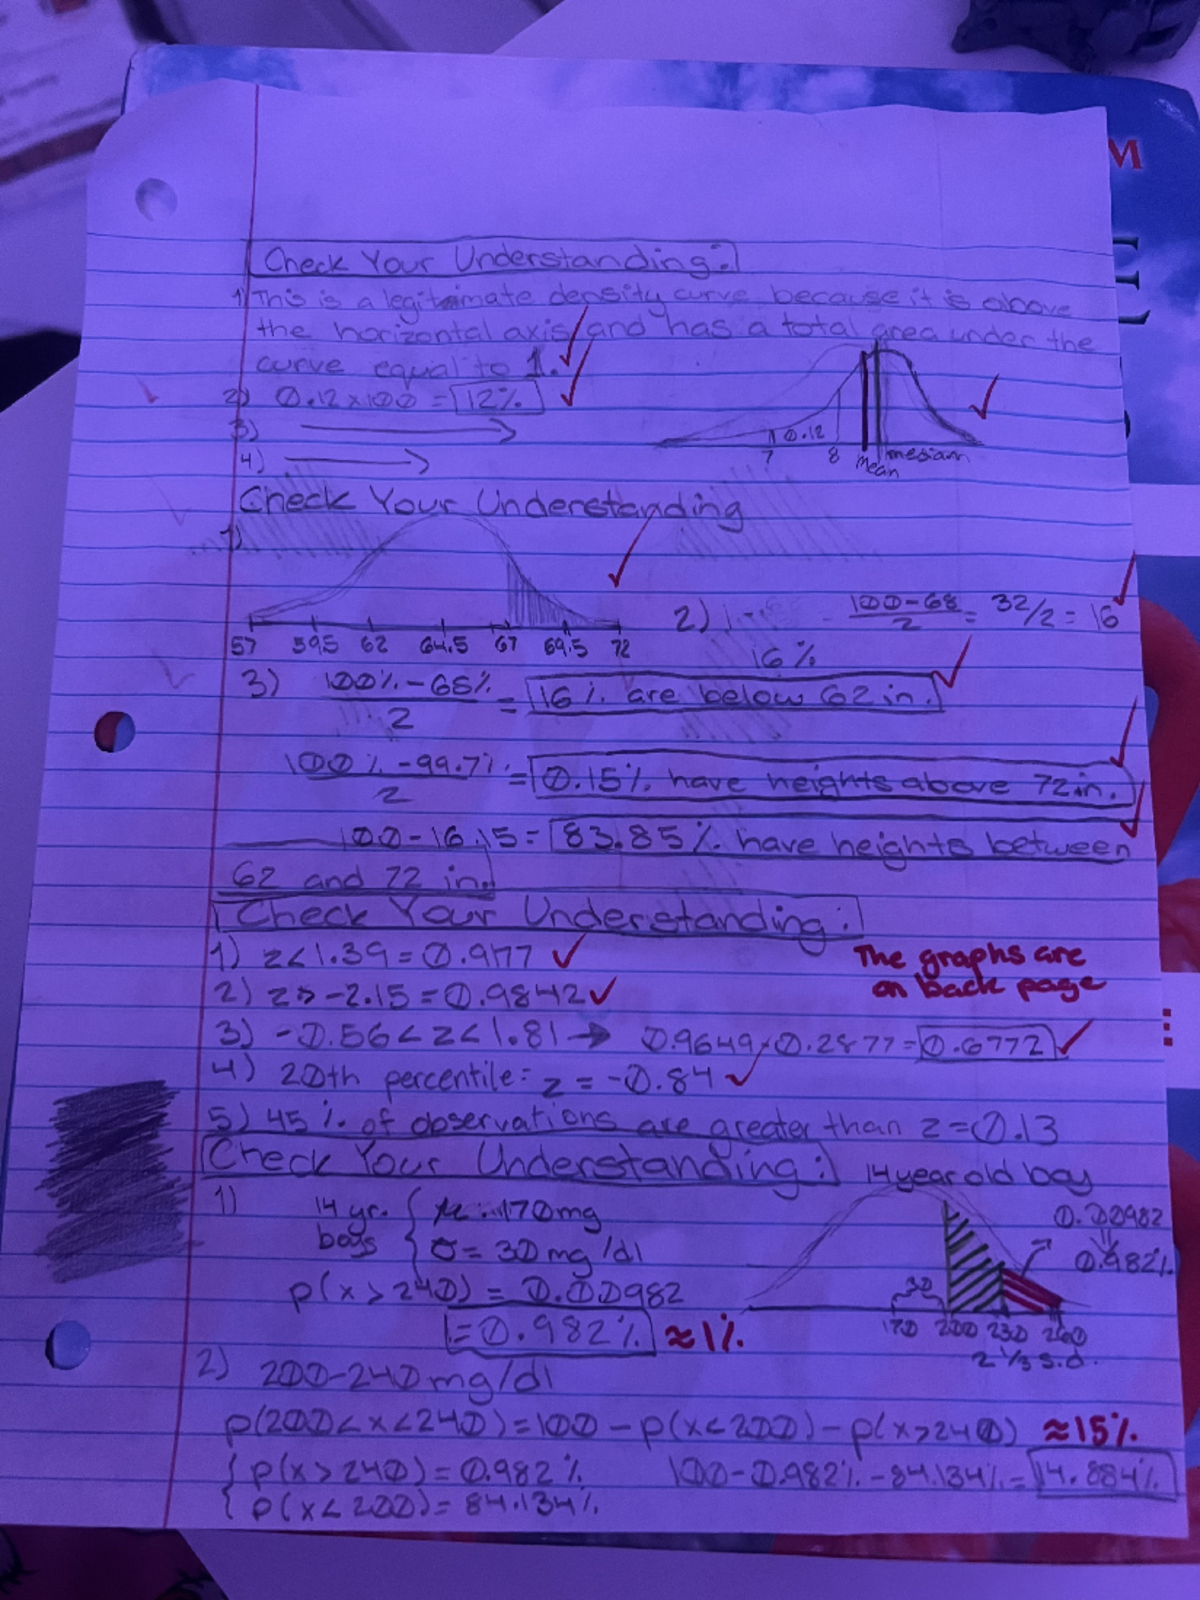 M
Check Your Understanding:
1) This is a legitimate density curve because it is above
the horizontal axis and has a total area under the
curve equal to 1.
2) 0.12x100 = 12%
3)
4)
0.12
7 8 Mean median
Check Your Understanding
1)
57 59.5 62 64.5 67 69.5 72
2) 100-68/2 = 32/2 = 16
16%
3) 100%-68%/2 = 16% are below 62 in.
100%-99.7%/2 = 0.15% have heights above 72 in.
100-16.15 = 83.85% have heights between
62 and 72 in.
Check Your Understanding:
1) z<1.39 = 0.9177
The graphs are
on back page
2) z>-2.15 = 0.9842
3) -0.56<z<1.81 → 0.9649-0.2877=0.6772
4) 20th percentile: z = -0.84
5) 45% of observations are greater than z=0.13
Check Your Understanding:
14 year old boy
1) 14 yr. boys { μ: 170mg
σ= 30mg/dl
p(x>240) = 0.00982
=0.982% ≈1%
0.00982
0.982%
30
170 200 230 240
2 1/3 s.d.
2) 200-240mg/dl
p(200<x<240)=100-p(x<200)-p(x>240) ≈15%
{ p(x>240)=0.982% 100-0.982%-84.134%=14.884%
{ p(x<200)=84.134%